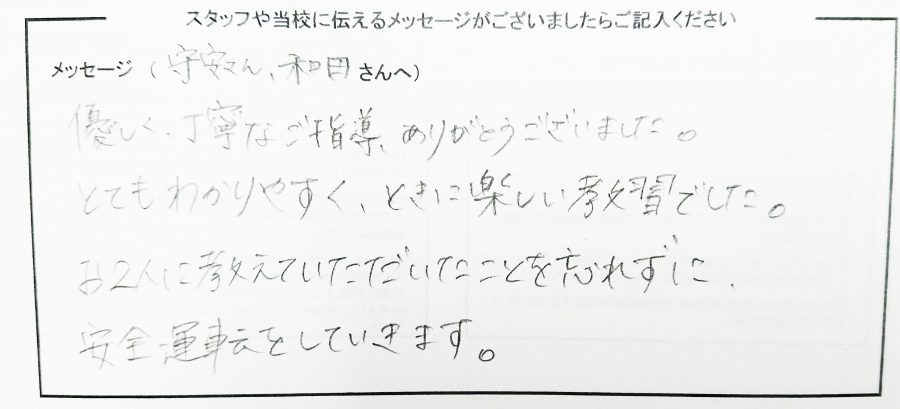 スタッフや当校に伝えるメッセージがございましたらご記入ください
メッセージ ( 守安さん、和田 さんへ)
優しく、丁寧なご指導、ありがとうございました。
とてもわかりやすく、ときに楽しい教習でした。
お2人に教えていただいたことを忘れずに、
安全運転をしていきます。